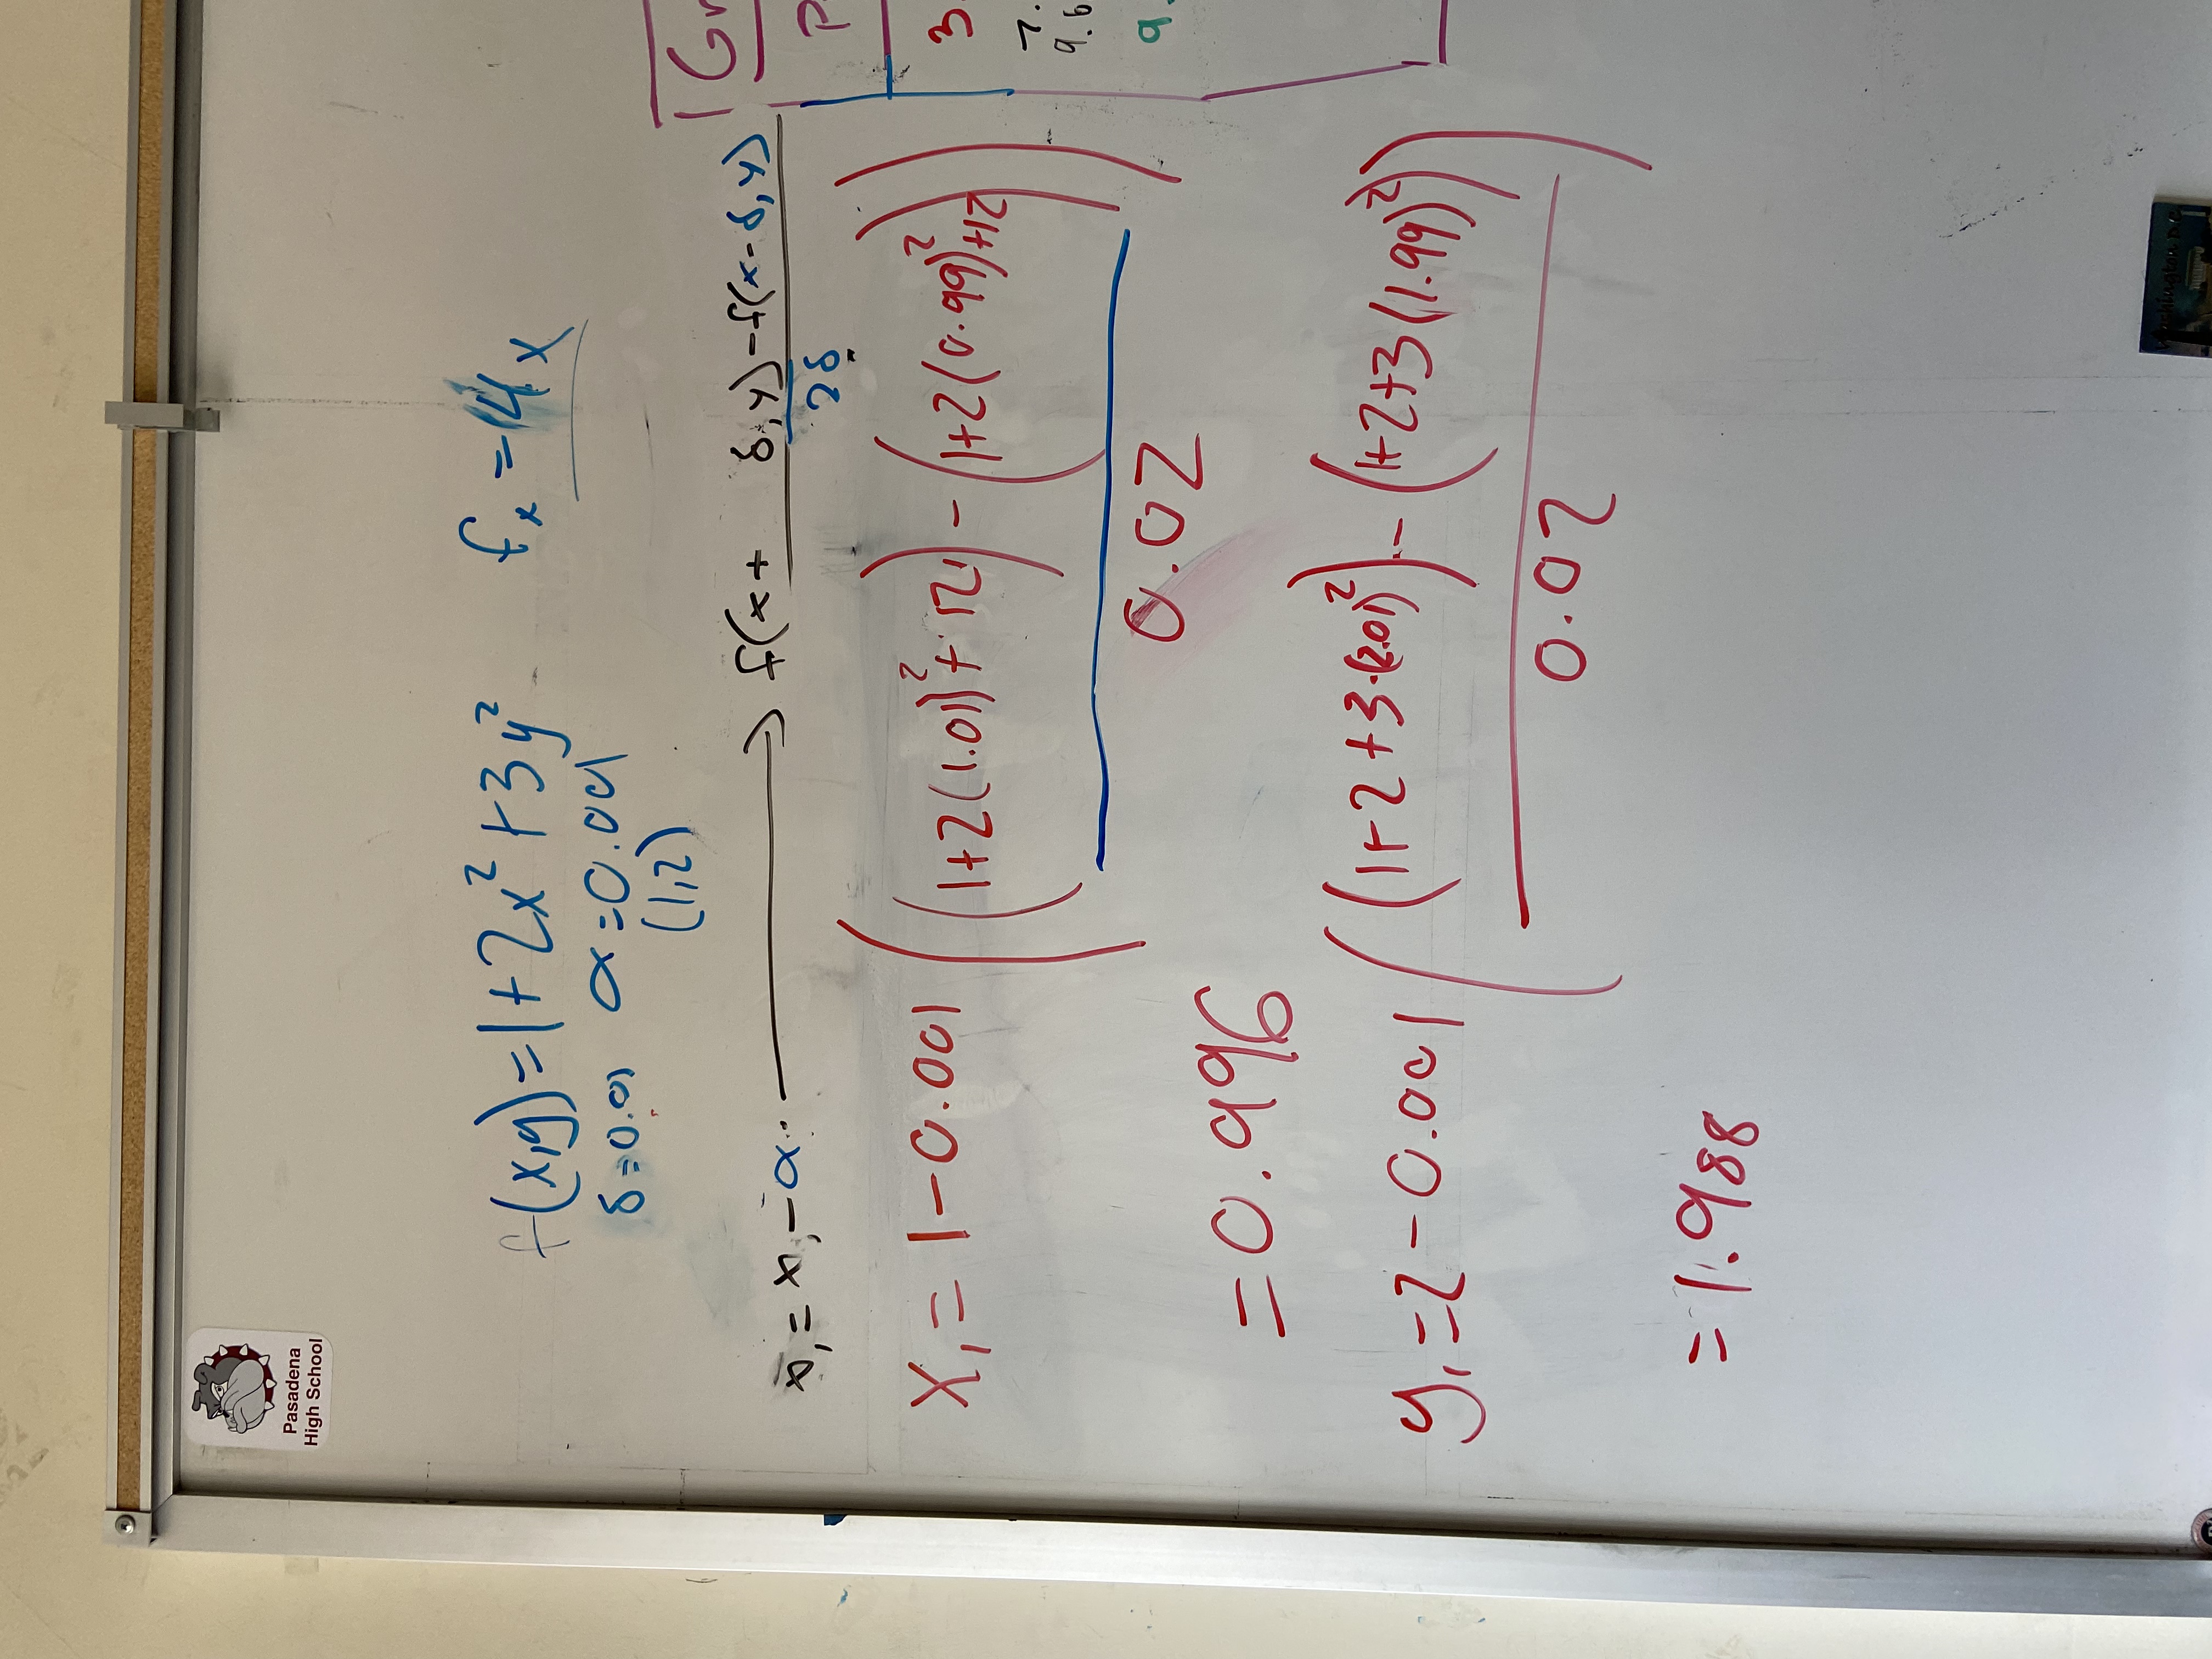 Pasadena
High School
f(x,y)=1+2x²+3y² fₓ=4x
δ=0.01 α=0.001
(1,2)
x₁=x₁-α· → f(x+ δ,y)-f(x-δ,y)
2δ
x₁=1-0.001((1+2(1.01)²+12)-(1+2(0.99)²+12))
0.02
=0.996
y₁=2-0.001((1+2+3·(2.01)²)-(1+2+3(1.99)²))
0.02
=1.988
Gr
P
3.
7.
9.6
9.
Washington D.C.